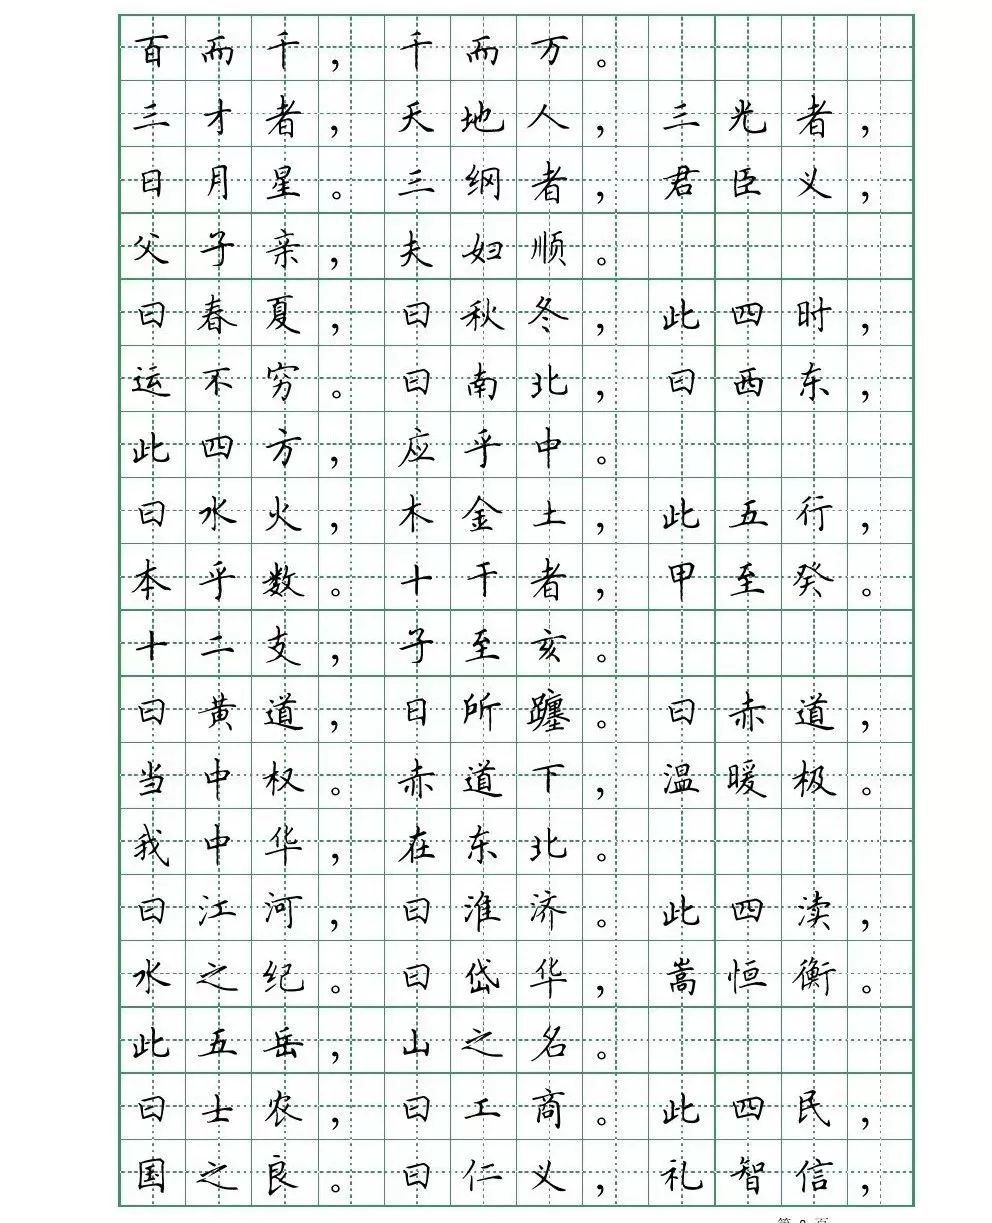 百而千，千而万。
三才者，天地人，三光者，
日月星。三纲者，君臣义，
父子亲，夫妇顺。
曰春夏，曰秋冬，此四时，
运不穷。曰南北，曰西东，
此四方，应乎中。
曰水火，木金土，此五行，
本乎数。十干者，甲至癸。
十二支，子至亥。
曰黄道，日所躔。曰赤道，
当中权。赤道下，温暖极。
我中华，在东北。
曰江河，曰淮济。此四渎，
水之纪。曰岱华，嵩恒衡。
此五岳，山之名。
曰士农，曰工商。此四民，
国之良。曰仁义，礼智信，